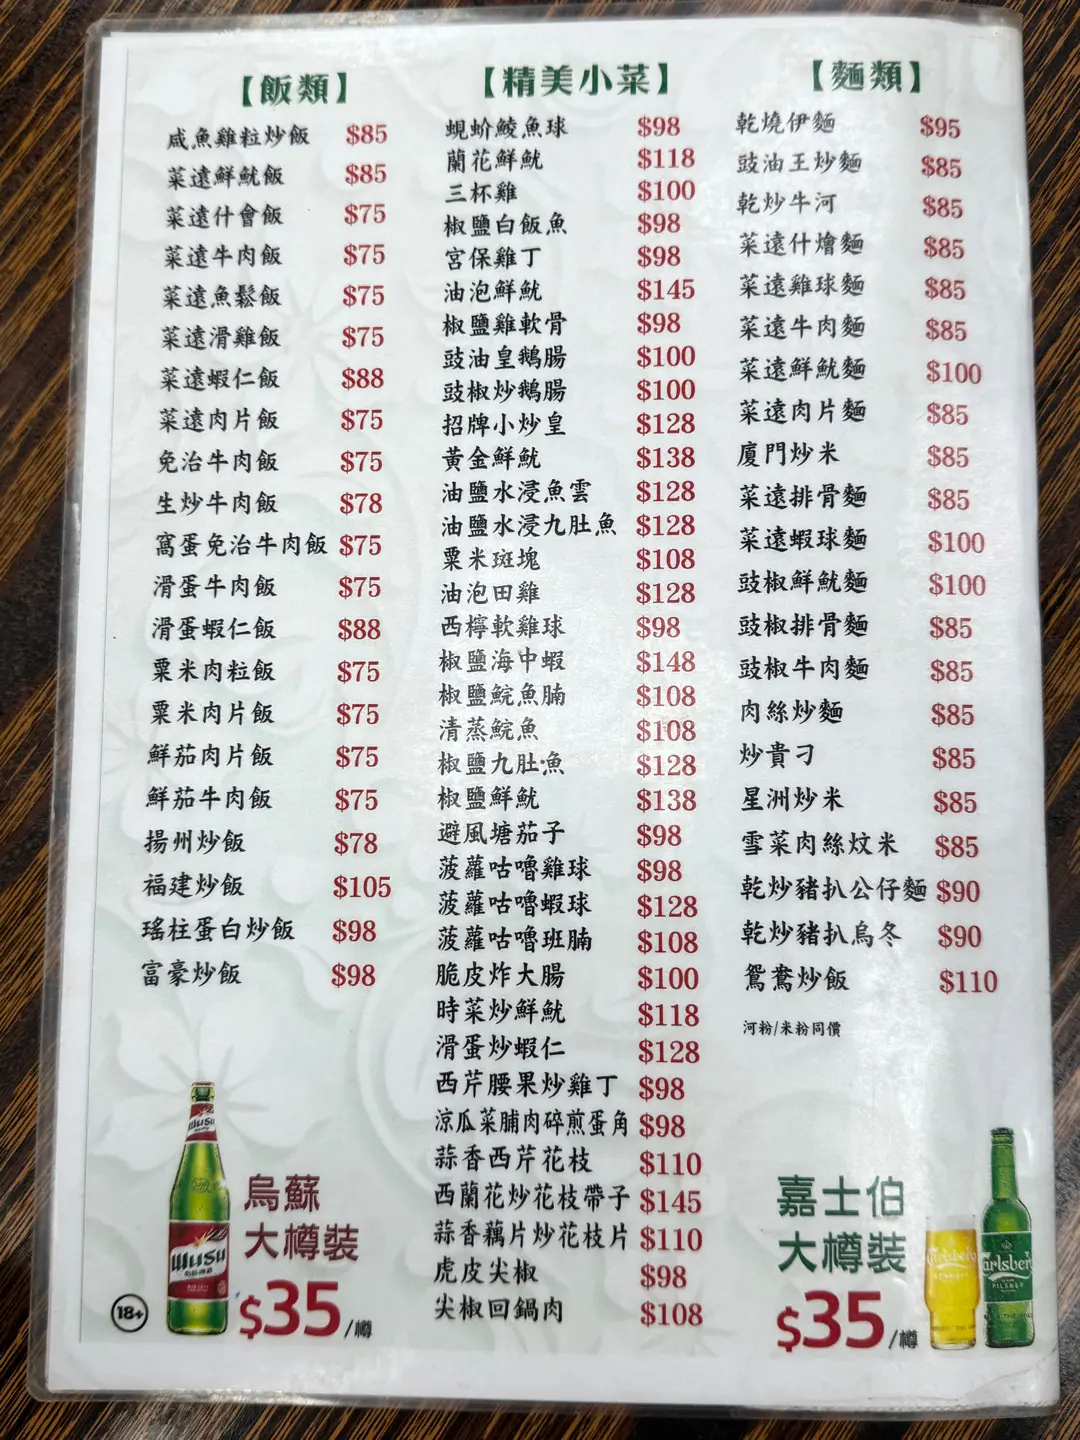 【飯類】
咸魚雞粒炒飯 $85
菜遠鮮魷飯 $85
菜遠什會飯 $75
菜遠牛肉飯 $75
菜遠魚鬆飯 $75
菜遠滑雞飯 $75
菜遠蝦仁飯 $88
菜遠肉片飯 $75
免治牛肉飯 $75
生炒牛肉飯 $78
窩蛋免治牛肉飯 $75
滑蛋牛肉飯 $75
滑蛋蝦仁飯 $88
粟米肉粒飯 $75
粟米肉片飯 $75
鮮茄肉片飯 $75
鮮茄牛肉飯 $75
揚州炒飯 $78
福建炒飯 $105
瑤柱蛋白炒飯 $98
富豪炒飯 $98
【精美小菜】
蜆蚧鯪魚球 $98
蘭花鮮魷 $118
三杯雞 $100
椒鹽白飯魚 $98
宮保雞丁 $98
油泡鮮魷 $145
椒鹽雞軟骨 $98
豉油皇鵝腸 $100
豉椒炒鵝腸 $100
招牌小炒皇 $128
黃金鮮魷 $138
油鹽水浸魚雲 $128
油鹽水浸九肚魚 $128
粟米斑塊 $108
油泡田雞 $128
西檸軟雞球 $98
椒鹽海中蝦 $148
椒鹽鯇魚腩 $108
清蒸鯇魚 $108
椒鹽九肚魚 $128
椒鹽鮮魷 $138
避風塘茄子 $98
菠蘿咕嚕雞球 $98
菠蘿咕嚕蝦球 $128
菠蘿咕嚕班腩 $108
脆皮炸大腸 $100
時菜炒鮮魷 $118
滑蛋炒蝦仁 $128
西芹腰果炒雞丁 $98
涼瓜菜脯肉碎煎蛋角 $98
蒜香西芹花枝 $110
西蘭花炒花枝帶子 $145
蒜香藕片炒花枝片 $110
虎皮尖椒 $98
尖椒回鍋肉 $108
【麵類】
乾燒伊麵 $95
豉油王炒麵 $85
乾炒牛河 $85
菜遠什燴麵 $85
菜遠雞球麵 $85
菜遠牛肉麵 $85
菜遠鮮魷麵 $100
菜遠肉片麵 $85
廈門炒米 $85
菜遠排骨麵 $85
菜遠蝦球麵 $100
豉椒鮮魷麵 $100
豉椒排骨麵 $85
豉椒牛肉麵 $85
肉絲炒麵 $85
炒貴刁 $85
星洲炒米 $85
雪菜肉絲炆米 $85
乾炒豬扒公仔麵 $90
乾炒豬扒烏冬 $90
鴛鴦炒飯 $110
河粉/米粉同價
18+
wusu
wusu
烏蘇
大樽裝
$35/樽
嘉士伯
大樽裝
$35/樽
Carlsberg
Carlsberg
PILSNER